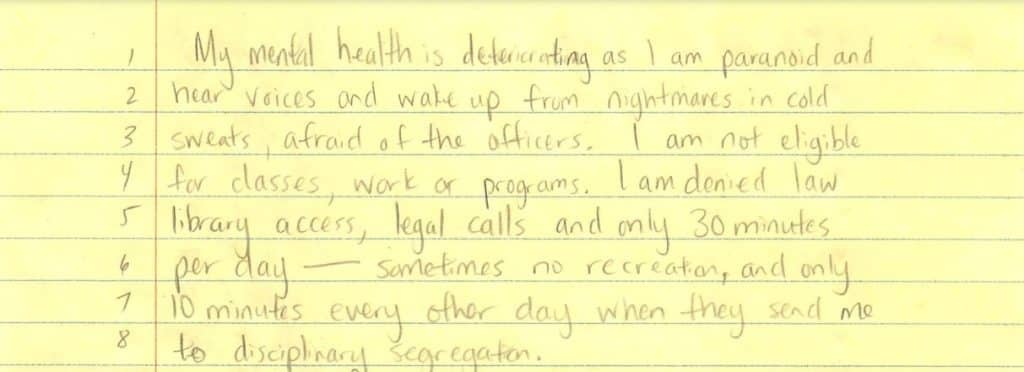 1 My mental health is deteriorating as I am paranoid and
2 hear voices and wake up from nightmares in cold
3 sweats, afraid of the officers. I am not eligible
4 for classes, work or programs. I am denied law
5 library access, legal calls and only 30 minutes
6 per day — sometimes no recreation, and only
7 10 minutes every other day when they send me
8 to disciplinary segregation.